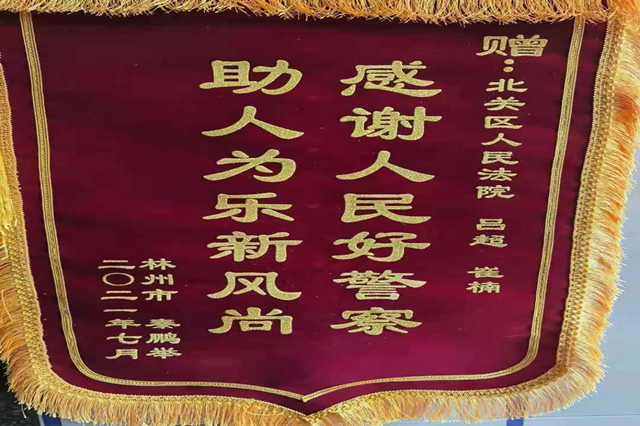 赠：北关区人民法院 吕超 崔楠
感谢人民好警察
助人为乐新风尚
林州市 秦鹏举
二〇二一年七月